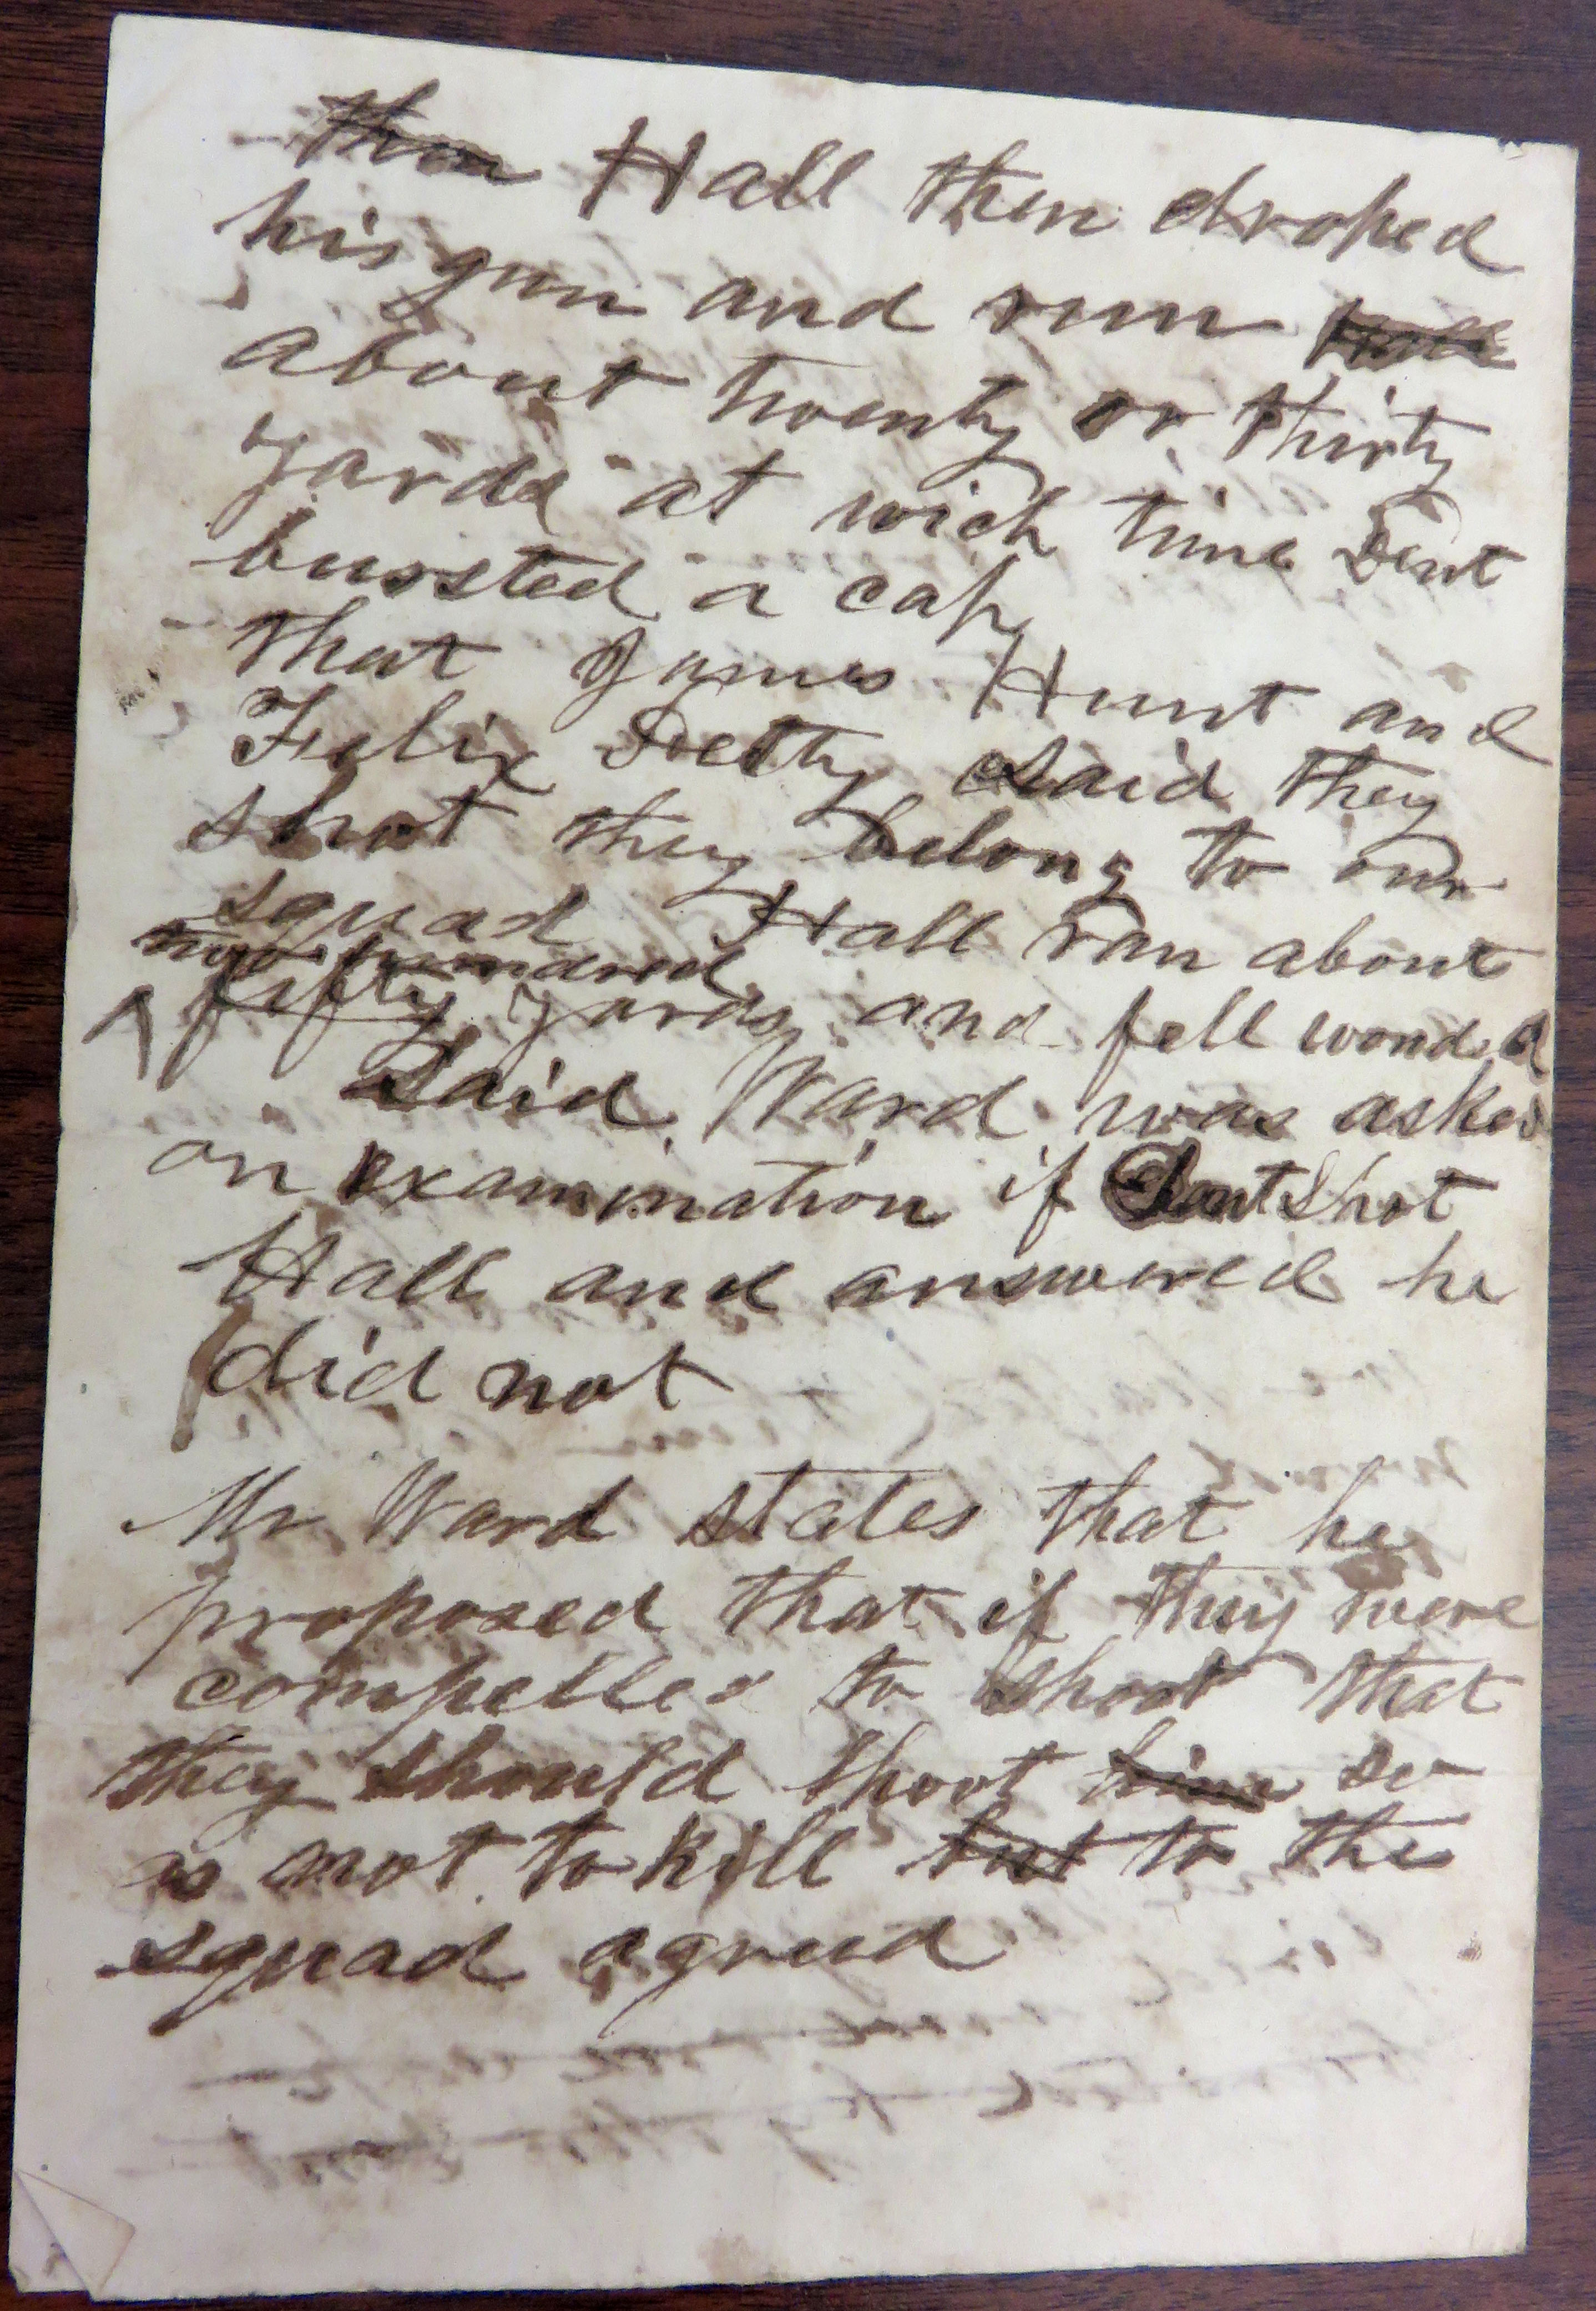 then Hall then droped
his gun and run Hall
about twenty or thirty
yards at wich time Dent
bussted a cap
that James Hunt and
Felix Petty said they
shot they belong to our
squad Hall ran about
two hundred
^ fifty yards and fell wonded
Said Ward was asked
on examination if Dent Shot
Hall and answered he
did not
Mr Ward states that he
proposed that if they were
compelled to shoot that
they should shoot him so
as not to kill but to the
squad agreed